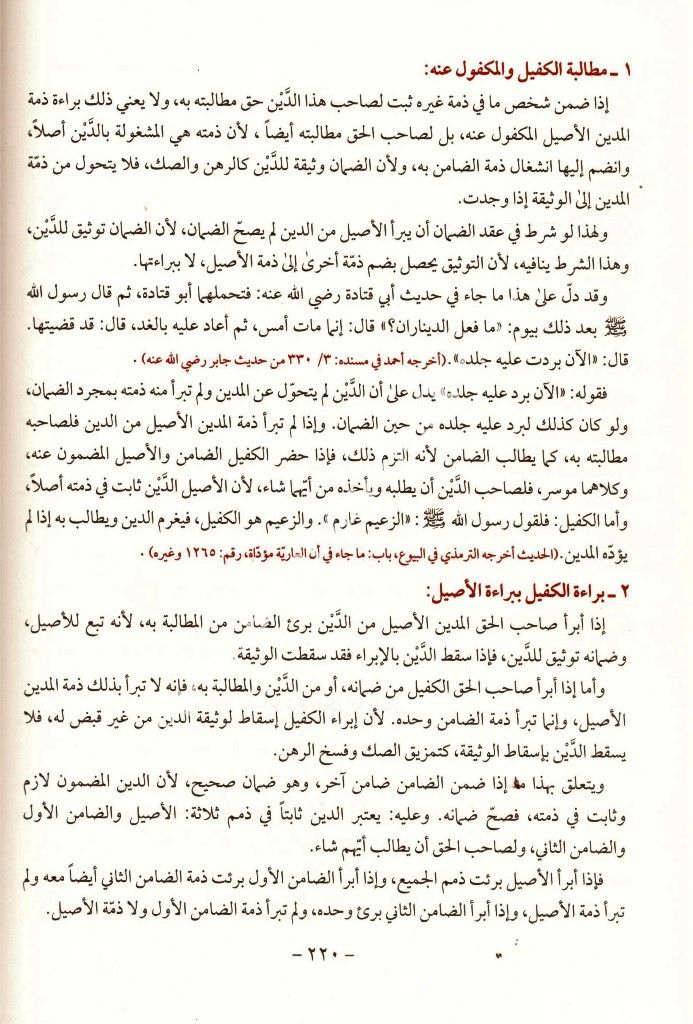 ١ ـ مطالبة الكفيل والمكفول عنه:
إذا ضمن شخص ما في ذمة غيره ثبت لصاحب هذا الدَّيْن حق مطالبته به، ولا يعني ذلك براءة ذمة
المدين الأصيل المكفول عنه، بل لصاحب الحق مطالبته أيضاً ، لأن ذمته هي المشغولة بالدَّيْن أصلاً،
وانضم إليها انشغال ذمة الضامن به، ولأن الضمان وثيقة للدَّيْن كالرهن والصك، فلا يتحول من ذمّة
المدين إلىٰ الوثيقة إذا وجدت.
ولهذا لو شرط في عقد الضمان أن يبرأ الأصيل من الدين لم يصحّ الضمان، لأن الضمان توثيق للدَّيْن،
وهذا الشرط ينافيه، لأن التوثيق يحصل بضم ذمّة أخرىٰ إلىٰ ذمة الأصيل، لا ببراءتها.
وقد دلّ علىٰ هذا ما جاء في حديث أبي قتادة رضي الله عنه: فتحملهما أبو قتادة، ثم قال رسول الله
ﷺ بعد ذلك بيوم: «ما فعل الديناران؟» قال: إنما مات أمس، ثم أعاد عليه بالغد، قال: قد قضيتها.
قال: «الآن بردت عليه جلده». (أخرجه أحمد في مسنده: ٣/ ٣٣٠ من حديث جابر رضي الله عنه) .
فقوله: «الآن برد عليه جلده» يدل علىٰ أن الدَّيْن لم يتحوّل عن المدين ولم تبرأ منه ذمته بمجرد الضمان،
ولو كان كذلك لبرد عليه جلده من حين الضمان. وإذا لم تبرأ ذمة المدين الأصيل من الدين فلصاحبه
مطالبته به، كما يطالب الضامن لأنه التزم ذلك، فإذا حضر الكفيل الضامن والأصيل المضمون عنه،
وكلاهما موسر، فلصاحب الدَّيْن أن يطلبه ويأخذه من أيّهما شاء، لأن الأصيل الدَّيْن ثابت في ذمته أصلاً،
وأما الكفيل: فلقول رسول الله ﷺ : «الزعيم غارم». والزعيم هو الكفيل، فيغرم الدين ويطالب به إذا لم
يؤدّه المدين. (الحديث أخرجه الترمذي في البيوع، باب: ما جاء في أن العاريّة مؤدّاة، رقم: ١٢٦٥ وغيره) .
٢ ـ براءة الكفيل ببراءة الأصيل:
إذا أبرأ صاحب الحق المدين الأصيل من الدَّيْن برئ الضامن من المطالبة به، لأنه تبع للأصيل،
وضمانه توثيق للدَّين، فإذا سقط الدَّيْن بالإبراء فقد سقطت الوثيقة.
وأما إذا أبرأ صاحب الحق الكفيل من ضمانه، أو من الدَّيْن والمطالبة به، فإنه لا تبرأ بذلك ذمة المدين
الأصيل، وإنما تبرأ ذمة الضامن وحده. لأن إبراء الكفيل إسقاط لوثيقة الدين من غير قبض له، فلا
يسقط الدَّيْن بإسقاط الوثيقة، كتمزيق الصك وفسخ الرهن.
ويتعلق بهذا ما إذا ضمن الضامن ضامن آخر، وهو ضمان صحيح، لأن الدين المضمون لازم
وثابت في ذمته، فصحّ ضمانه. وعليه: يعتبر الدين ثابتاً في ذمم ثلاثة: الأصيل والضامن الأول
والضامن الثاني، ولصاحب الحق أن يطالب أيّهم شاء.
فإذا أبرأ الأصيل برئت ذمم الجميع، وإذا أبرأ الضامن الأول برئت ذمة الضامن الثاني أيضاً معه ولم
تبرأ ذمة الأصيل، وإذا أبرأ الضامن الثاني برئ وحده، ولم تبرأ ذمة الضامن الأول ولا ذمّة الأصيل.
- ٢٢٠ -